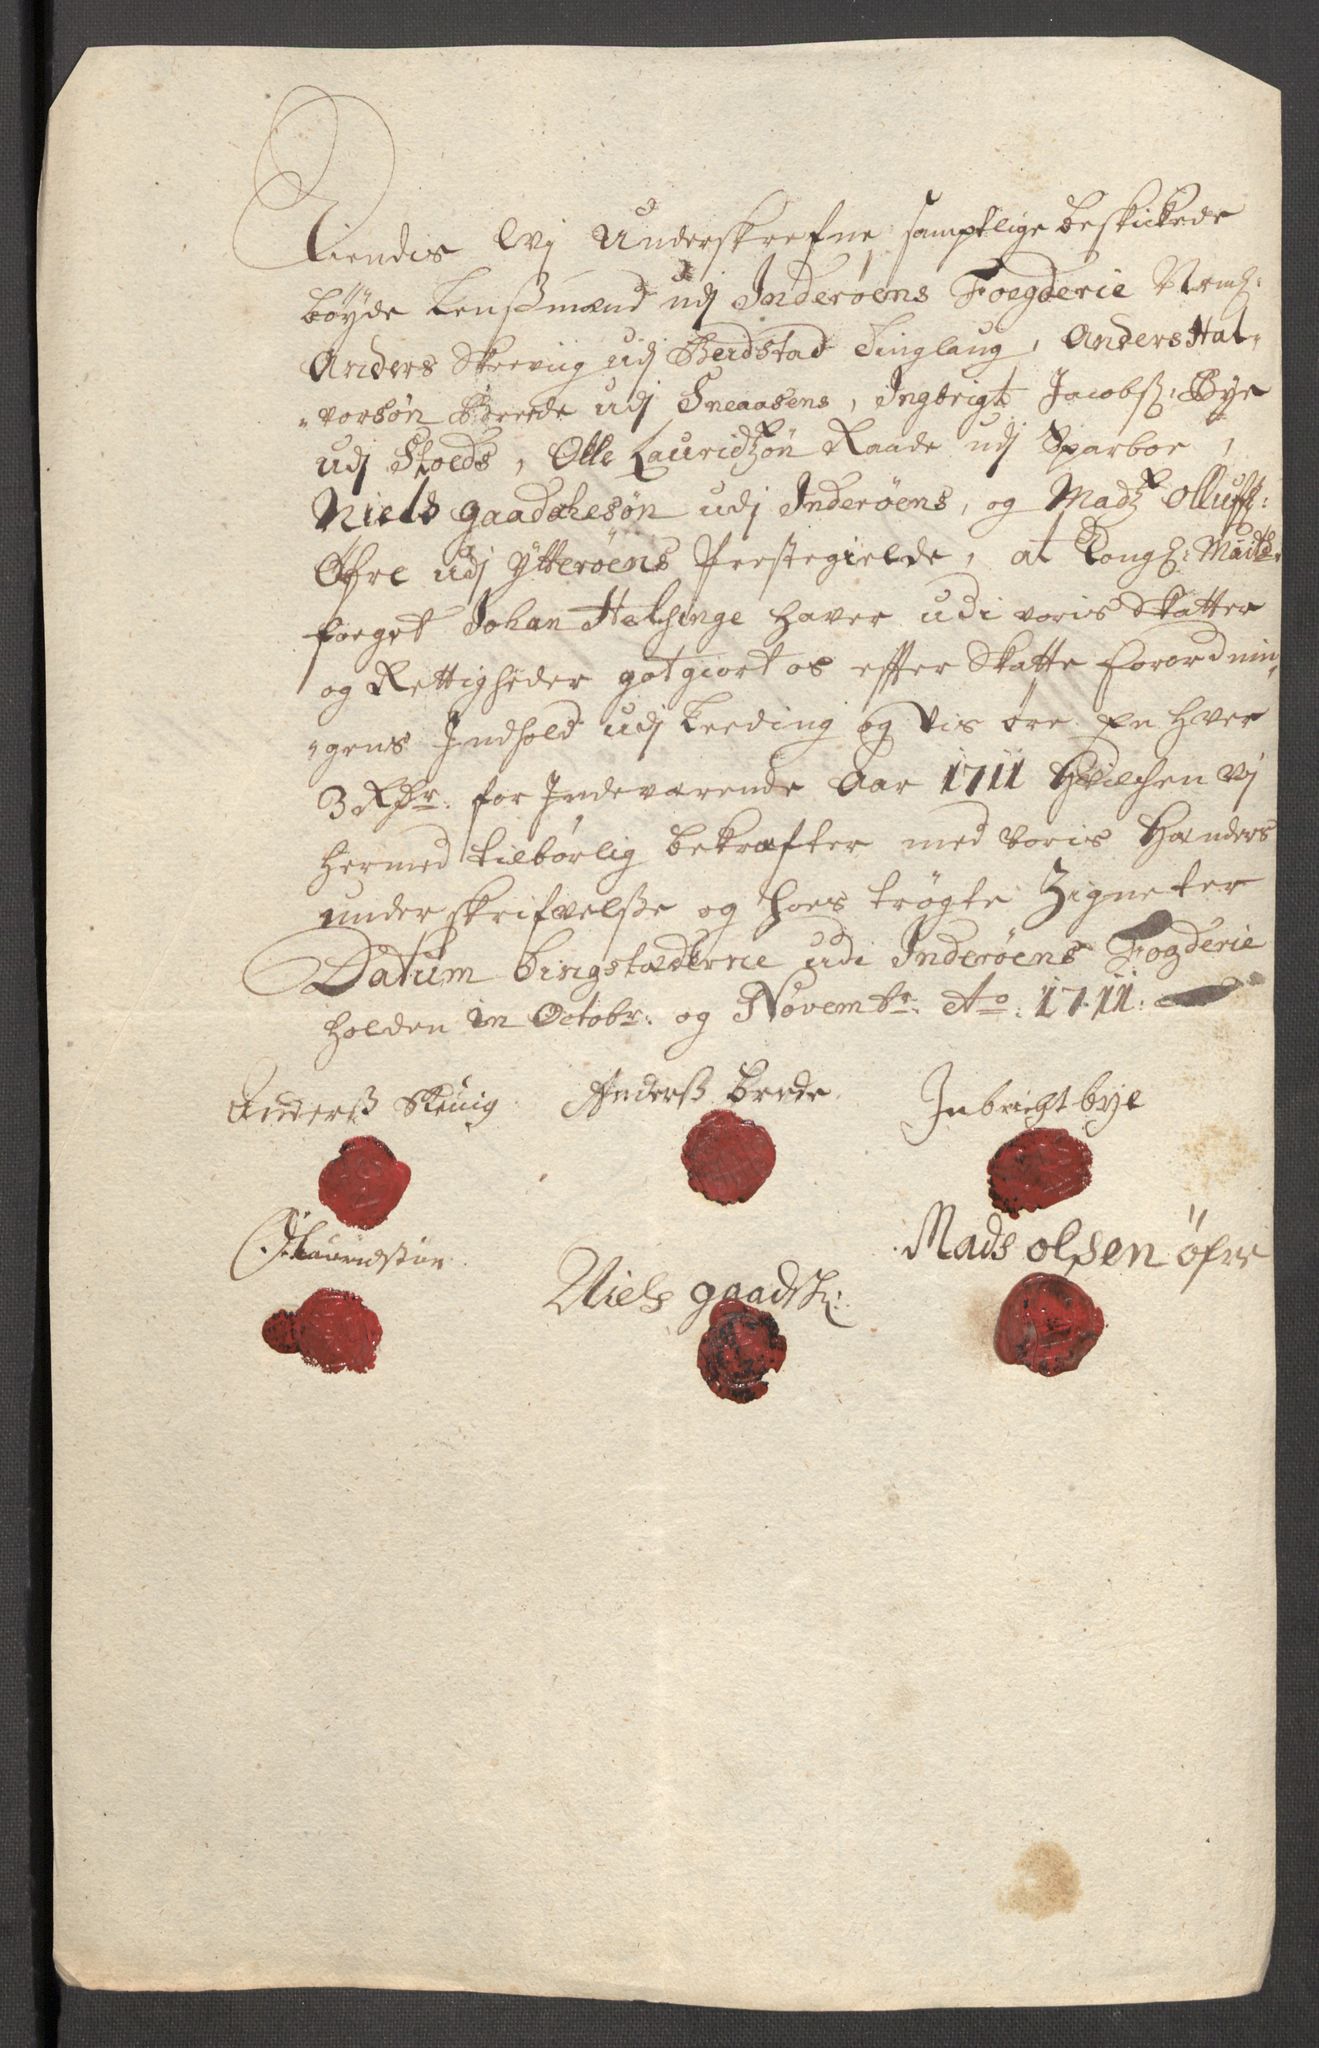 Kiendis Wj Underskrefne samptlige beskickede
böyde Lensmænd udj Inderöens Foegderie Neml:
Anders Skeviig udj Beidstad Tinglaug, Anders Hal-
-vorsön Brede udj Sneaasens, Ingbrigt Jacobß: Bye
udj Stoeds, Olle Lauridtzön Raade udj Sparboe,
Niels gaadskesön udj Inderöens, og Madtz Olluffß:
Öfre udj Ytteröens Prestegielde, at Kongl: Maÿtz
foeget Johan Helsinge haver udi voris Skatter
og Rettigheder gotgiort os effter Skatte Forordnin-
-gens Indhold udj Leeding og Vis öre En hver
3 Rdr. for Indeværende Aar 1711 Hvilchen Vj
hermed tilbörlig bekræfter med voris Hænders
underskrifvelße og hoes trögte Zigneter
Datum Tingstæderne udi Inderöens Fogderie
holden in Octobr: og Novembr: Ao: 1711:
Anderß Skeuig
Anderß brede
Inbricht bye
O Lauridßön
Niels gaadsk:
Mads olsen öfre